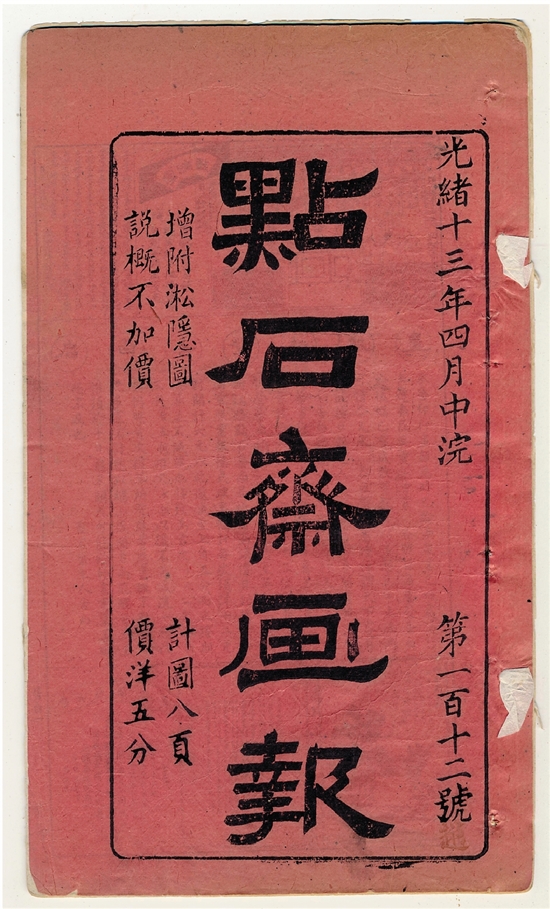 光緒十三年四月中浣
第一百十二號
點石齋画報
增附淞隱圖
説概不加價
計圖八頁
價洋五分